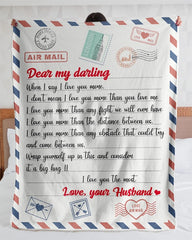 AIR MAIL
Dear my darling
When I say I love you more,
I don't mean I love you more than you love me.
I love you more than any fight we will ever have
I love you more than the distance between us.
I love you more than any obstacle that could try
and come between us.
Wrap yourself up in this and consider
it a big hug !!
I love you the most.
Love, your Husband